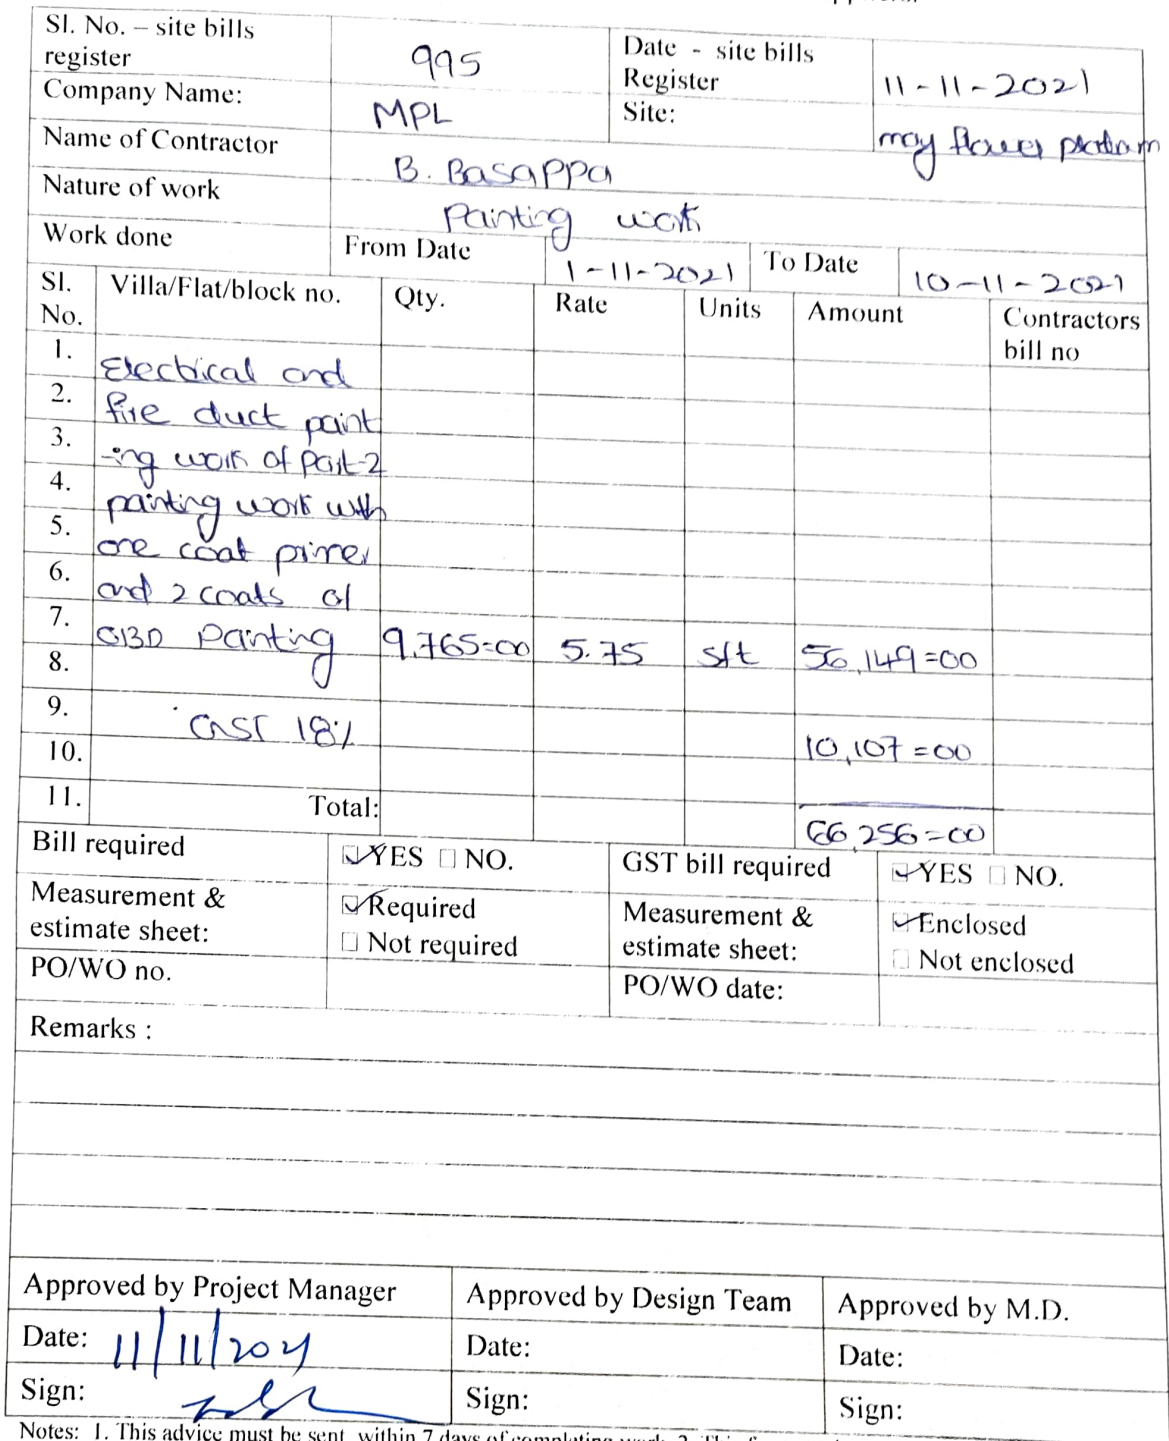 Sl. No. – site bills register 995 Date - site bills Register 11-11-2021
Company Name: MPL Site: may flower platinum
Name of Contractor B. Basappa
Nature of work Painting work
Work done From Date 1-11-2021 To Date 10-11-2021
Sl. No. Villa/Flat/block no. Qty. Rate Units Amount Contractors bill no
1. Electrical and
2. fire duct paint
3. -ing work of Part-2
4. painting work with
5. one coat primer
6. and 2 coats of
7. OBD Painting 9,765=00 5.75 sft 56,149=00
8.
9. GST 18% 10,107=00
10.
11. Total: 66,256=00
Bill required YES NO. GST bill required YES NO.
Measurement & estimate sheet: Required Not required Measurement & estimate sheet: Enclosed Not enclosed
PO/WO no. PO/WO date:
Remarks :
Approved by Project Manager Approved by Design Team Approved by M.D.
Date: 11/11/2021 Date: Date:
Sign: Sign: Sign:
Notes: 1. This advice must be sent within 7 days of completing work. 2. This